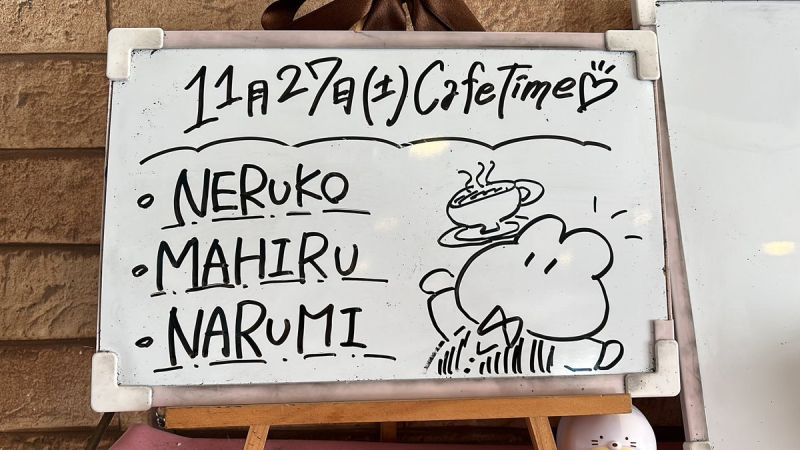 11月27日(土) Cafe Time♡
• NERUKO
• MAHIRU
• NARUMI